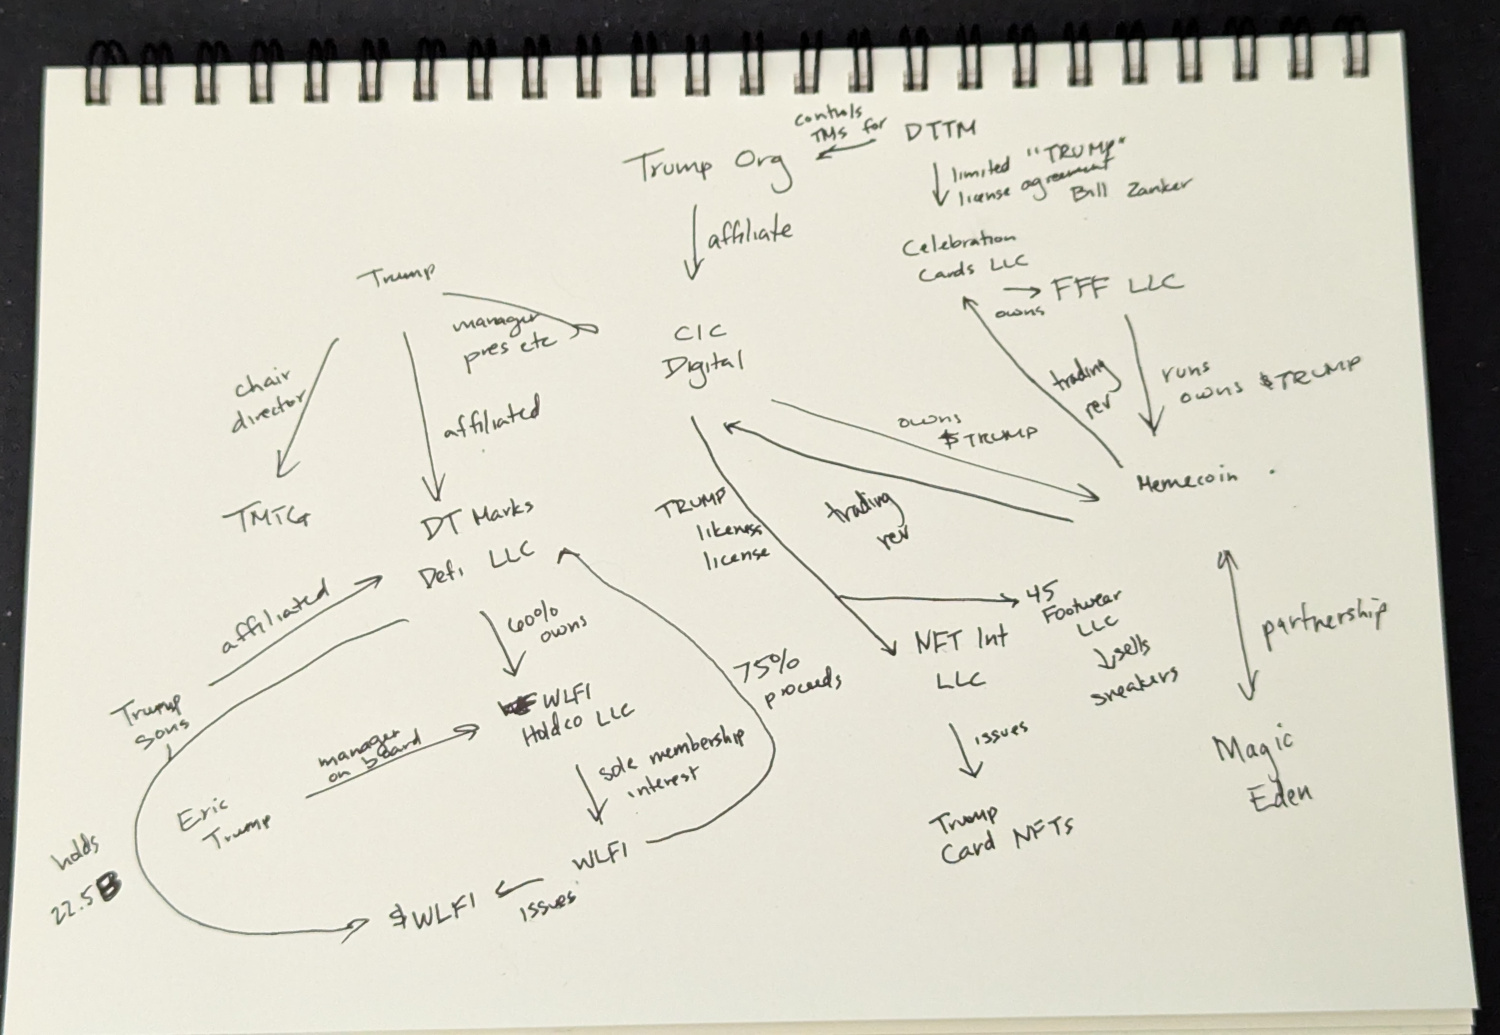 controls
TMs for
DTTM
Trump Org
limited "TRUMP"
license agreement
Bill Zanker
affiliate
Celebration
Cards LLC
owns
FFF LLC
Trump
manager
pres etc
CIC
Digital
chair
director
affiliated
trading
rev
runs
owns $TRUMP
owns
$TRUMP
Memecoin
TMTG
DT Marks
Defi LLC
TRUMP
likeness
license
trading
rev
affiliated
60%
owns
NFT Int
LLC
45
Footwear
LLC
sells
sneakers
partnership
75%
proceeds
Trump
sons
WLFI
Holdco LLC
manager
on board
sole membership
interest
issues
Magic
Eden
Eric
Trump
Trump
Card NFTs
holds
22.5B
WLFI
issues
$WLFI